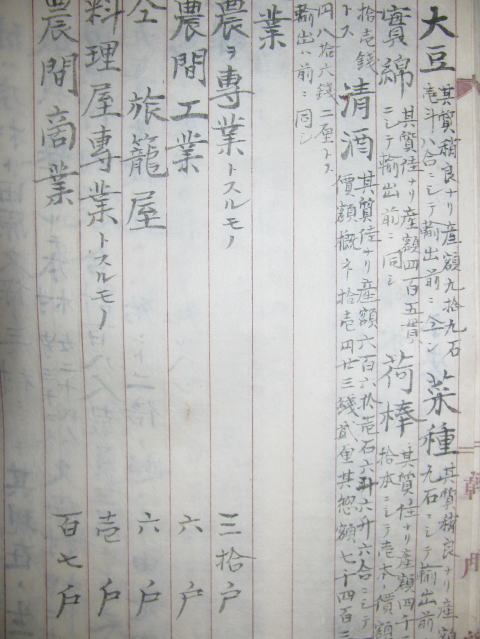 大豆 其質稍良ナリ産額九拾九石 菜種 其質稍良ナリ産額
壱斗八合ニシテ輸出前ニ 九石ニシテ輸出前
實綿 其質佳ナリ産額四百五貫 荷棒 其質佳ナリ産額四千
ニシテ輸出前ニ同シ 拾本ニシテ壱本ノ價額
拾壱錢 清酒 其質佳ナリ産額六百六拾壱石六斗六升六合ニシテ
トス 價額概子拾壱円廿三錢貳厘其惣額七千四百三
円八拾六錢二厘トス
輸出ハ前ニ同シ
業
農ヲ專業トスルモノ 三拾戸
農間工業 六戸
仝 旅籠屋 六戸
料理屋專業トスルモノ 壱戸
農間商業 百七戸